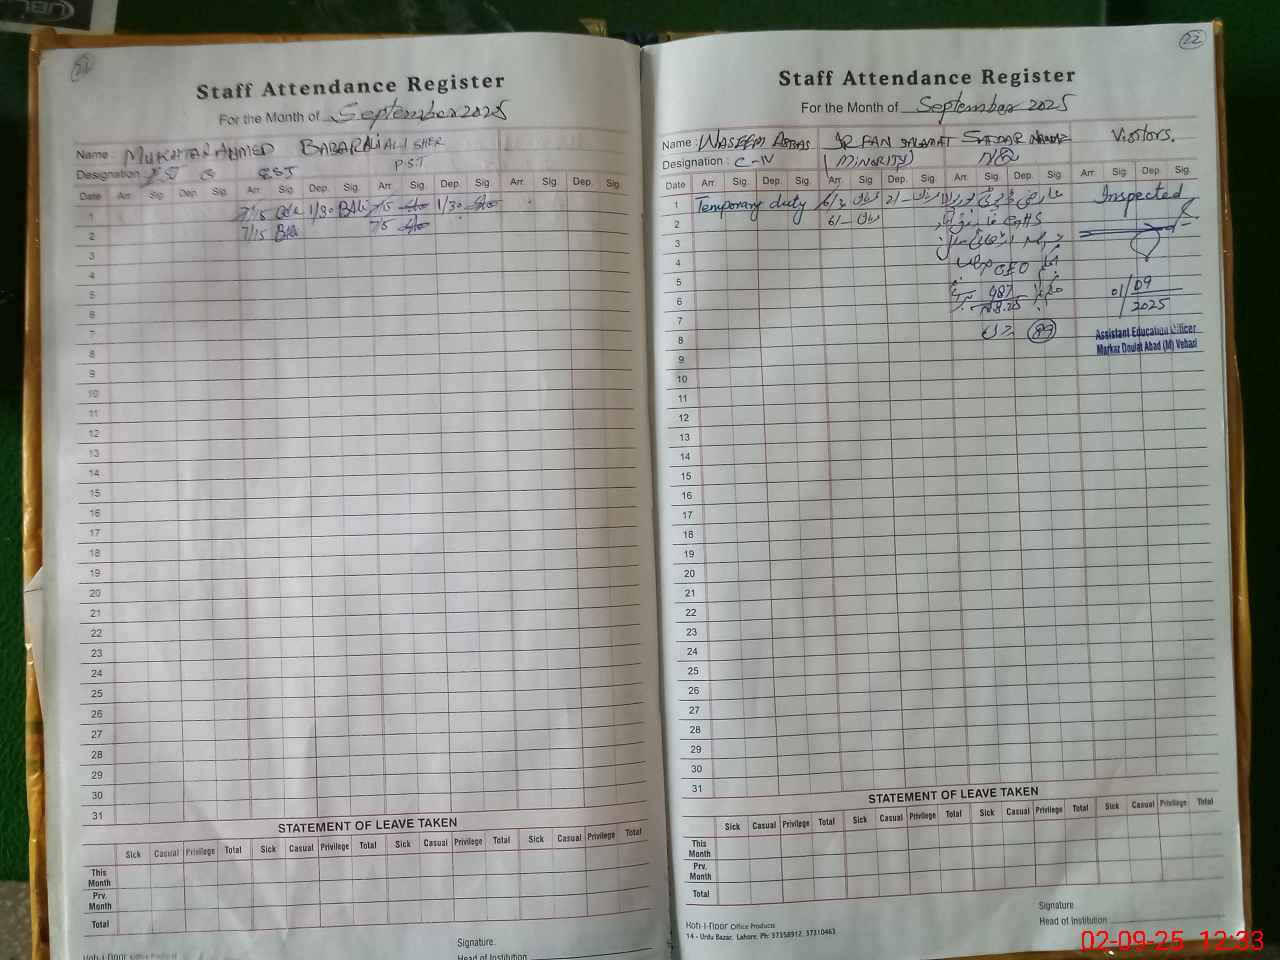 UBL
21
Staff Attendance Register
For the Month of September 2025
Name : MUKHTAR AHMED BABAR ALI ALI SHER
Designation : EST EST P.S.T
Date Arr. Sig. Dep. Sig. Arr. Sig. Dep. Sig. Arr. Sig. Dep. Sig. Arr. Sig. Dep. Sig.
1 7/15 1/30 7/5 1/30
2 7/15 7/5
3
4
5
6
7
8
9
10
11
12
13
14
15
16
17
18
19
20
21
22
23
24
25
26
27
28
29
30
31
STATEMENT OF LEAVE TAKEN
Sick Casual Privilege Total Sick Casual Privilege Total Sick Casual Privilege Total Sick Casual Privilege Total
This Month
Prv. Month
Total
Signature.
Koh-i-Noor Office Products Head of Institution
22
Staff Attendance Register
For the Month of September 2025
Name : WASEEM ABBAS IRFAN SALAMAT Visitors.
Designation : C-IV (MINORITY) N/Q
Date Arr. Sig. Dep. Sig. Arr. Sig. Dep. Sig. Arr. Sig. Dep. Sig. Arr. Sig. Dep. Sig.
1 Temporary duty Inspected
2 GHS
3
4 CEO
5 987 01/09
6 2025
7
8 89 Assistant Education Officer
9 Markaz Doulat Abad (M) Vehari
10
11
12
13
14
15
16
17
18
19
20
21
22
23
24
25
26
27
28
29
30
31
STATEMENT OF LEAVE TAKEN
Sick Casual Privilege Total Sick Casual Privilege Total Sick Casual Privilege Total Sick Casual Privilege Total
This Month
Prv. Month
Total
Signature.
Koh-i-Noor Office Products Head of Institution
14 - Urdu Bazar, Lahore. Ph: 37358912, 37310463
02-09-25 12:33